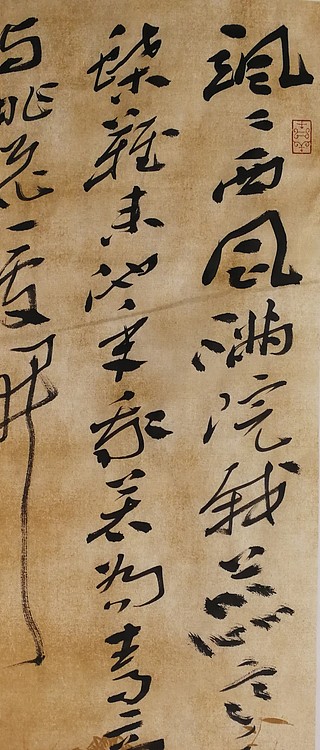 飒飒西风满院栽蕊寒
蝶難来他年我若为青帝
与桃花一处開